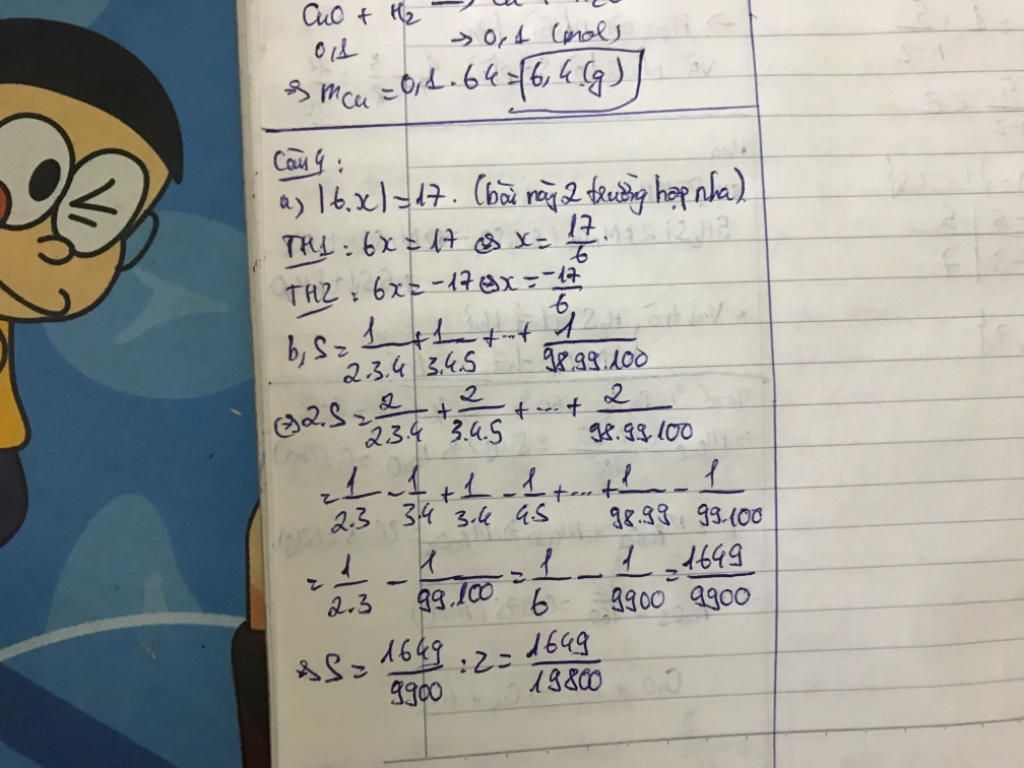 CuO + H₂ → Cu + H₂O
0,1 → 0,1 (mol)
=> mCu = 0,1 . 64 = 6,4 (g)
Câu 4:
a, |6.x| = 17. (bài này 2 trường hợp nha)
TH1: 6x = 17 <=> x = 17/6.
TH2: 6x = -17 <=> x = -17/6
b, S = 1/2.3.4 + 1/3.4.5 + ... + 1/98.99.100
<=> 2.S = 2/2.3.4 + 2/3.4.5 + ... + 2/98.99.100
= 1/2.3 - 1/3.4 + 1/3.4 - 1/4.5 + ... + 1/98.99 - 1/99.100
= 1/2.3 - 1/99.100 = 1/6 - 1/9900 = 1649/9900
=> S = 1649/9900 : 2 = 1649/19800